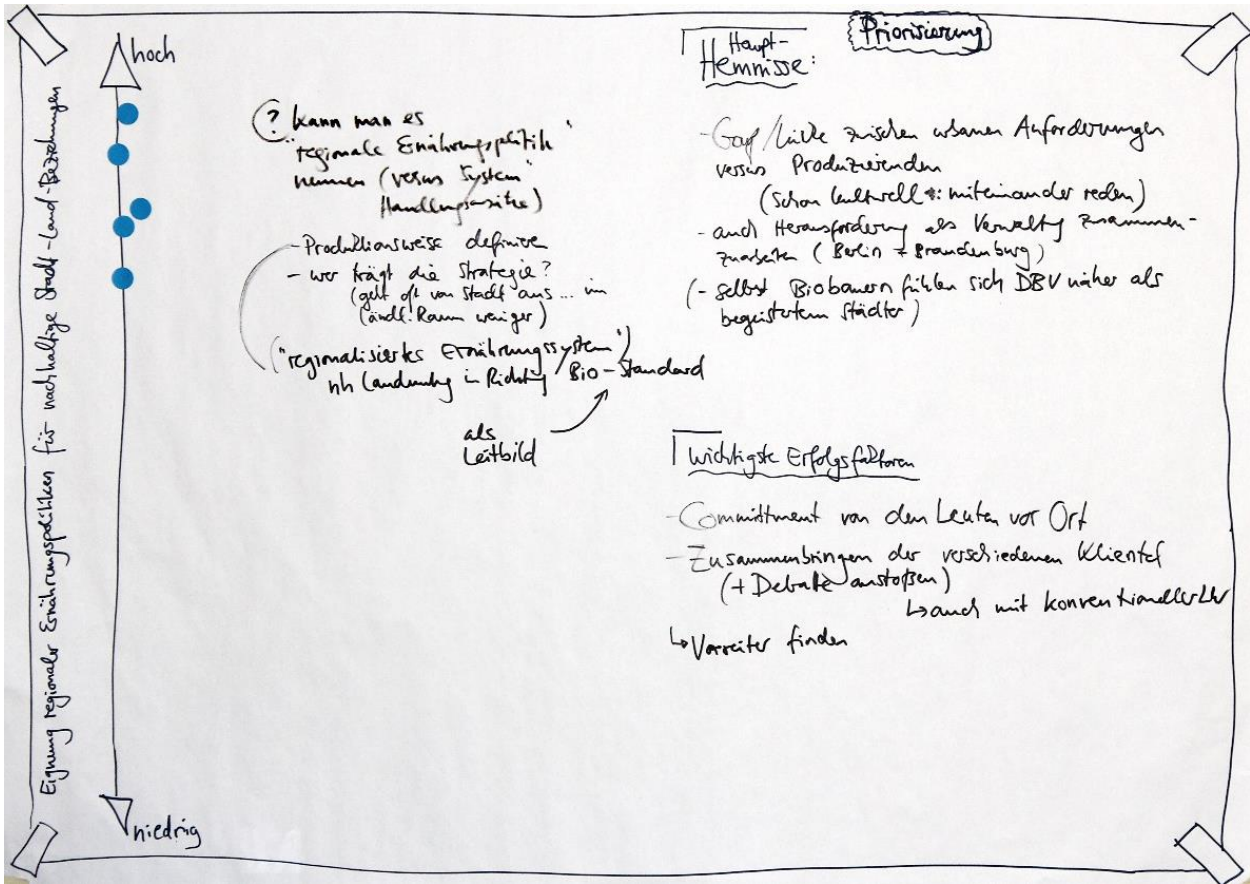 Priorisierung
Eignung regionaler Ernährungspolitiken für nachhaltige Stadt-Land-Beziehungen
hoch
niedrig
? kann man es
"regionale Ernährungspolitik"
nennen (versus System"
Handlungsansätze)
- Produktionsweise definieren
- wer trägt die Strategie?
(geht oft von Stadt aus... im
ländl. Raum weniger)
("regionalisiertes Ernährungssystem")
nh Landnutzg in Richtung Bio-Standard
als
Leitbild
Haupt-
Hemnisse:
- Gap/Lücke zwischen urbanen Anforderungen
versus Produzierenden
(schon kulturell: miteinander reden)
- auch Herausforderung als Verwaltung zusammen-
zuarbeiten (Berlin + Brandenburg)
(- selbst Biobauern fühlen sich DBV näher als
begeistertem Städter)
wichtigste Erfolgsfaktoren
- Committment von den Leuten vor Ort
- Zusammenbringen der verschiedenen Klientel
(+ Debatte anstoßen)
↳ auch mit konventioneller
↳ Vorreiter finden